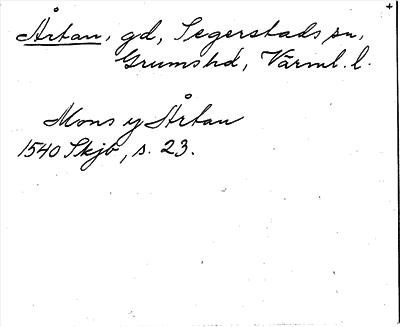 Årtan, gd, Segerstads sn,
Grums hd, Värml. l.
Mons y Årtan
1540 Skjb, s. 23.